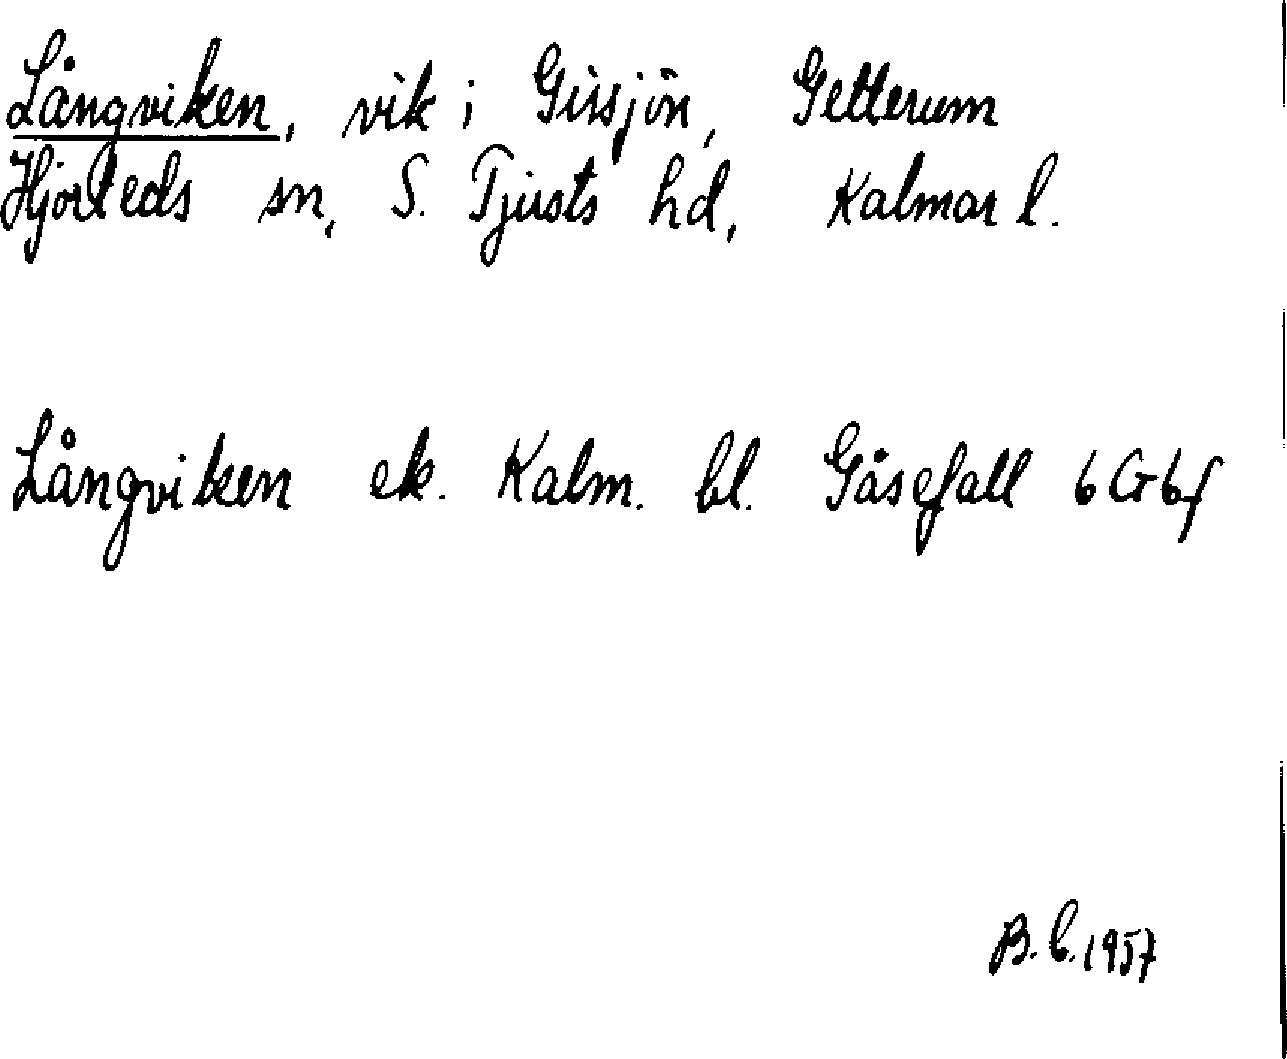 Långviken, vik i Gissjön, Getterum
Hjorteds sn, S. Tjusts hd, Kalmar l.
Långviken ek. Kalm. bl. Gåsefall 6G6f
B. C. 1957